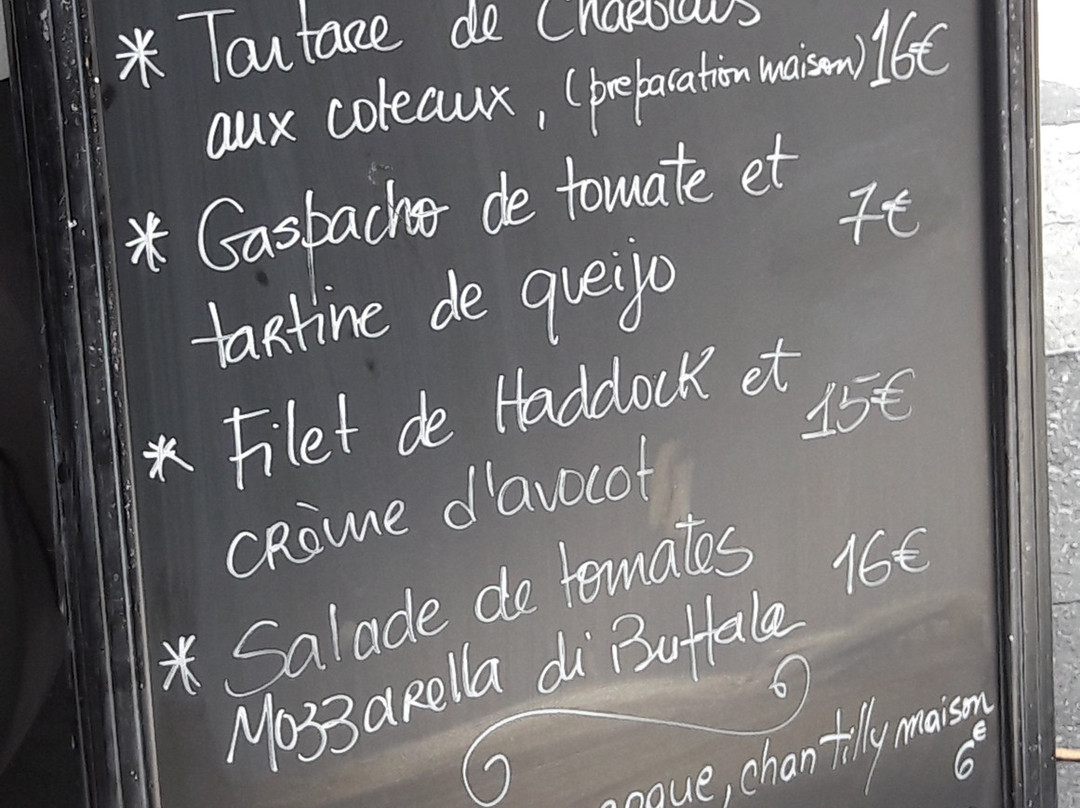 * Tartare de Charolais
aux coteaux, (preparation maison) 16€
* Gaspacho de tomate et
7€
tartine de queijo
* Filet de Haddock et
15€
crème d'avocat
* Salade de tomates
16€
Mozzarella di Buffala
, chantilly maison
6€